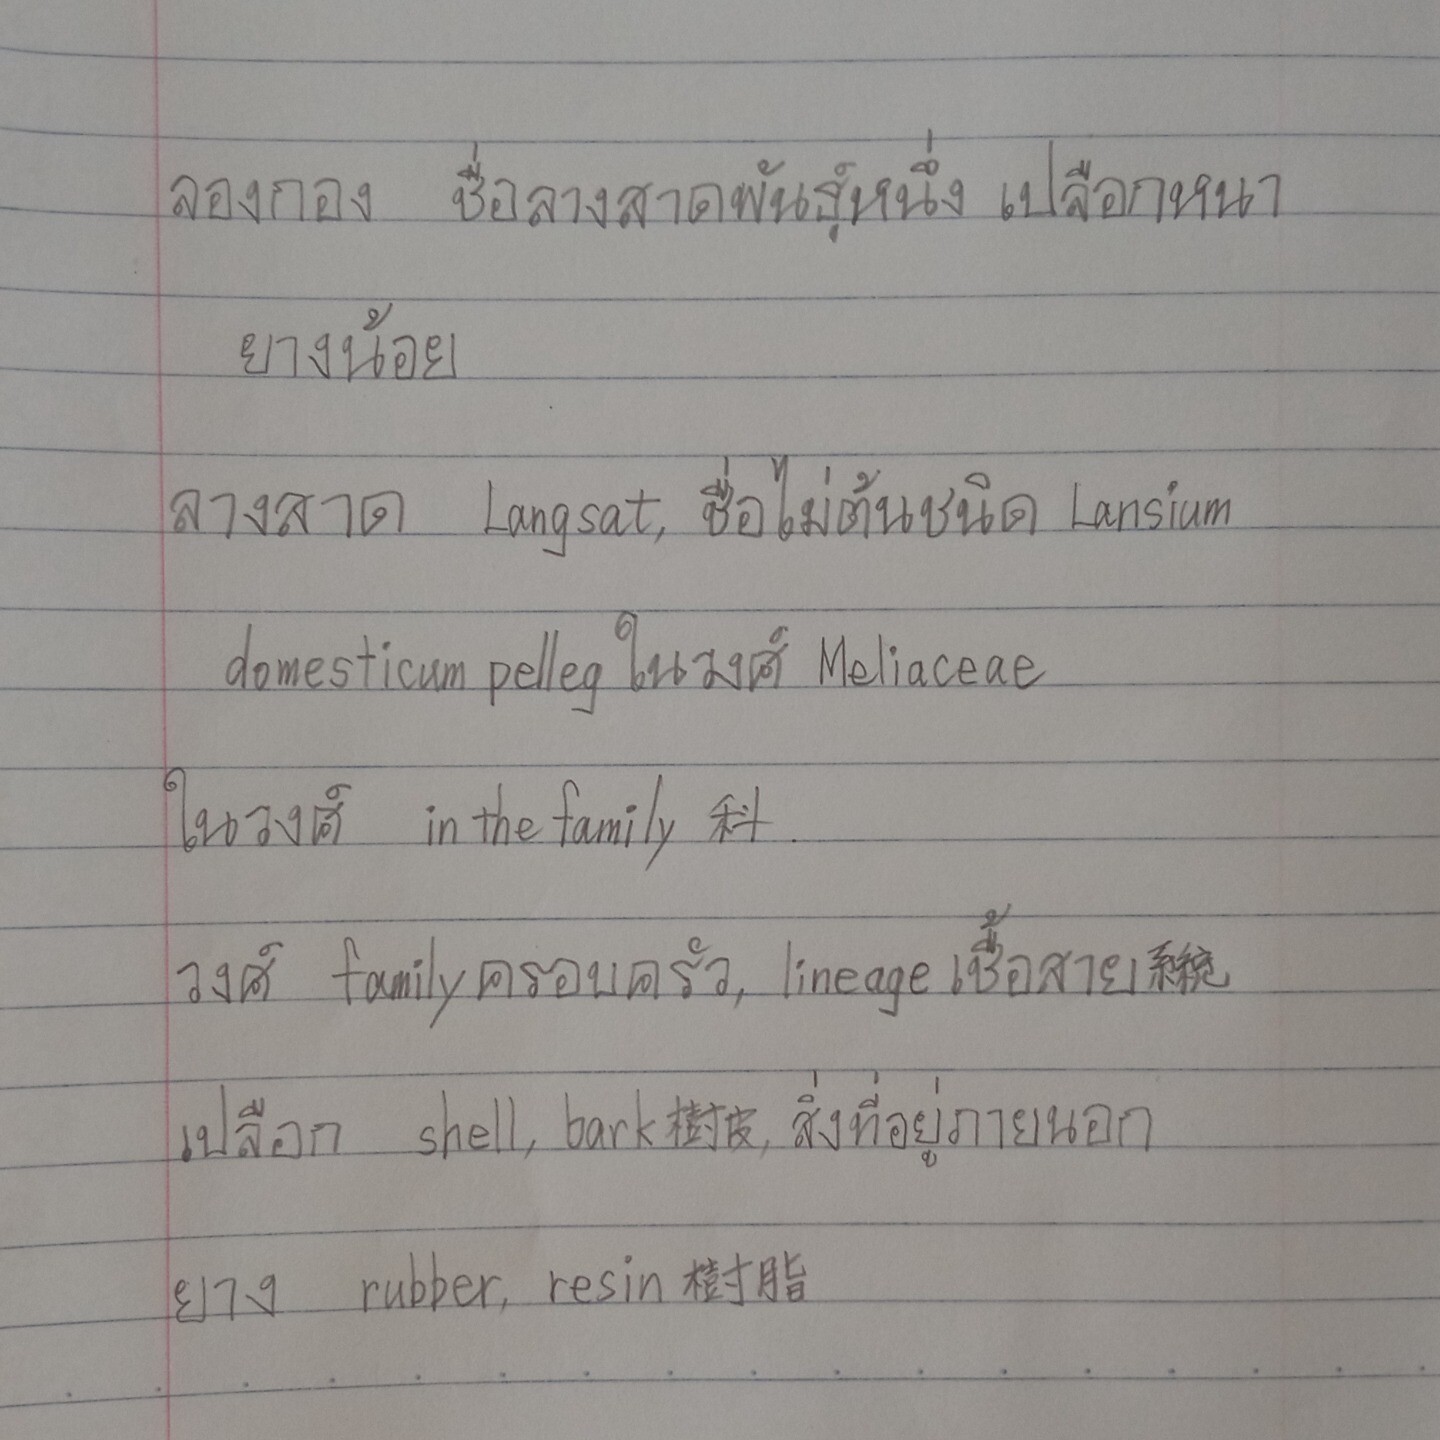 ลองกอง ชื่อลางสาดพันธุ์หนึ่ง เปลือกหนา
ยางน้อย
ลางสาด Langsat, ชื่อไม้ต้นชนิด Lansium
domesticum pelleg ในวงศ์ Meliaceae
ในวงศ์ in the family 科.
วงศ์ family ครอบครัว, lineage เชื้อสาย 系統
เปลือก shell, bark 樹皮, สิ่งที่อยู่ภายนอก
ยาง rubber, resin 樹脂